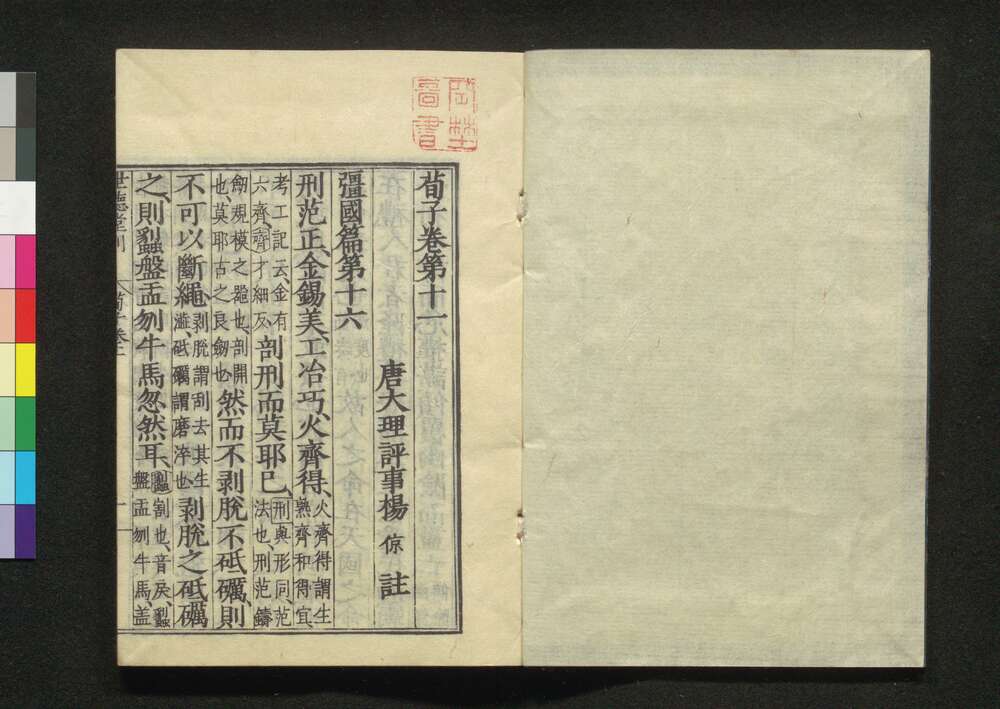 岡埜
圖書
荀子卷第十一
唐大理評事楊倞註
彊國篇第十六
刑范正、金錫美、工冶巧、火齊得、火齊得謂生
熟齊和得宜、
考工記云、金有
六齊、齊才細反、剖刑而莫耶已、刑與形同、范
法也、刑范鑄
劒規模之器也、剖開
也、莫耶古之良劒也、然而不剥脫不砥礪、則
不可以斷繩、剥脫謂刮去其生
澁、砥礪謂磨淬也、剥脫之砥礪
之、則劙盤盂刎牛馬忽然耳、劙割也、音戾、劙
盤盂刎牛馬、盖
世德堂刊